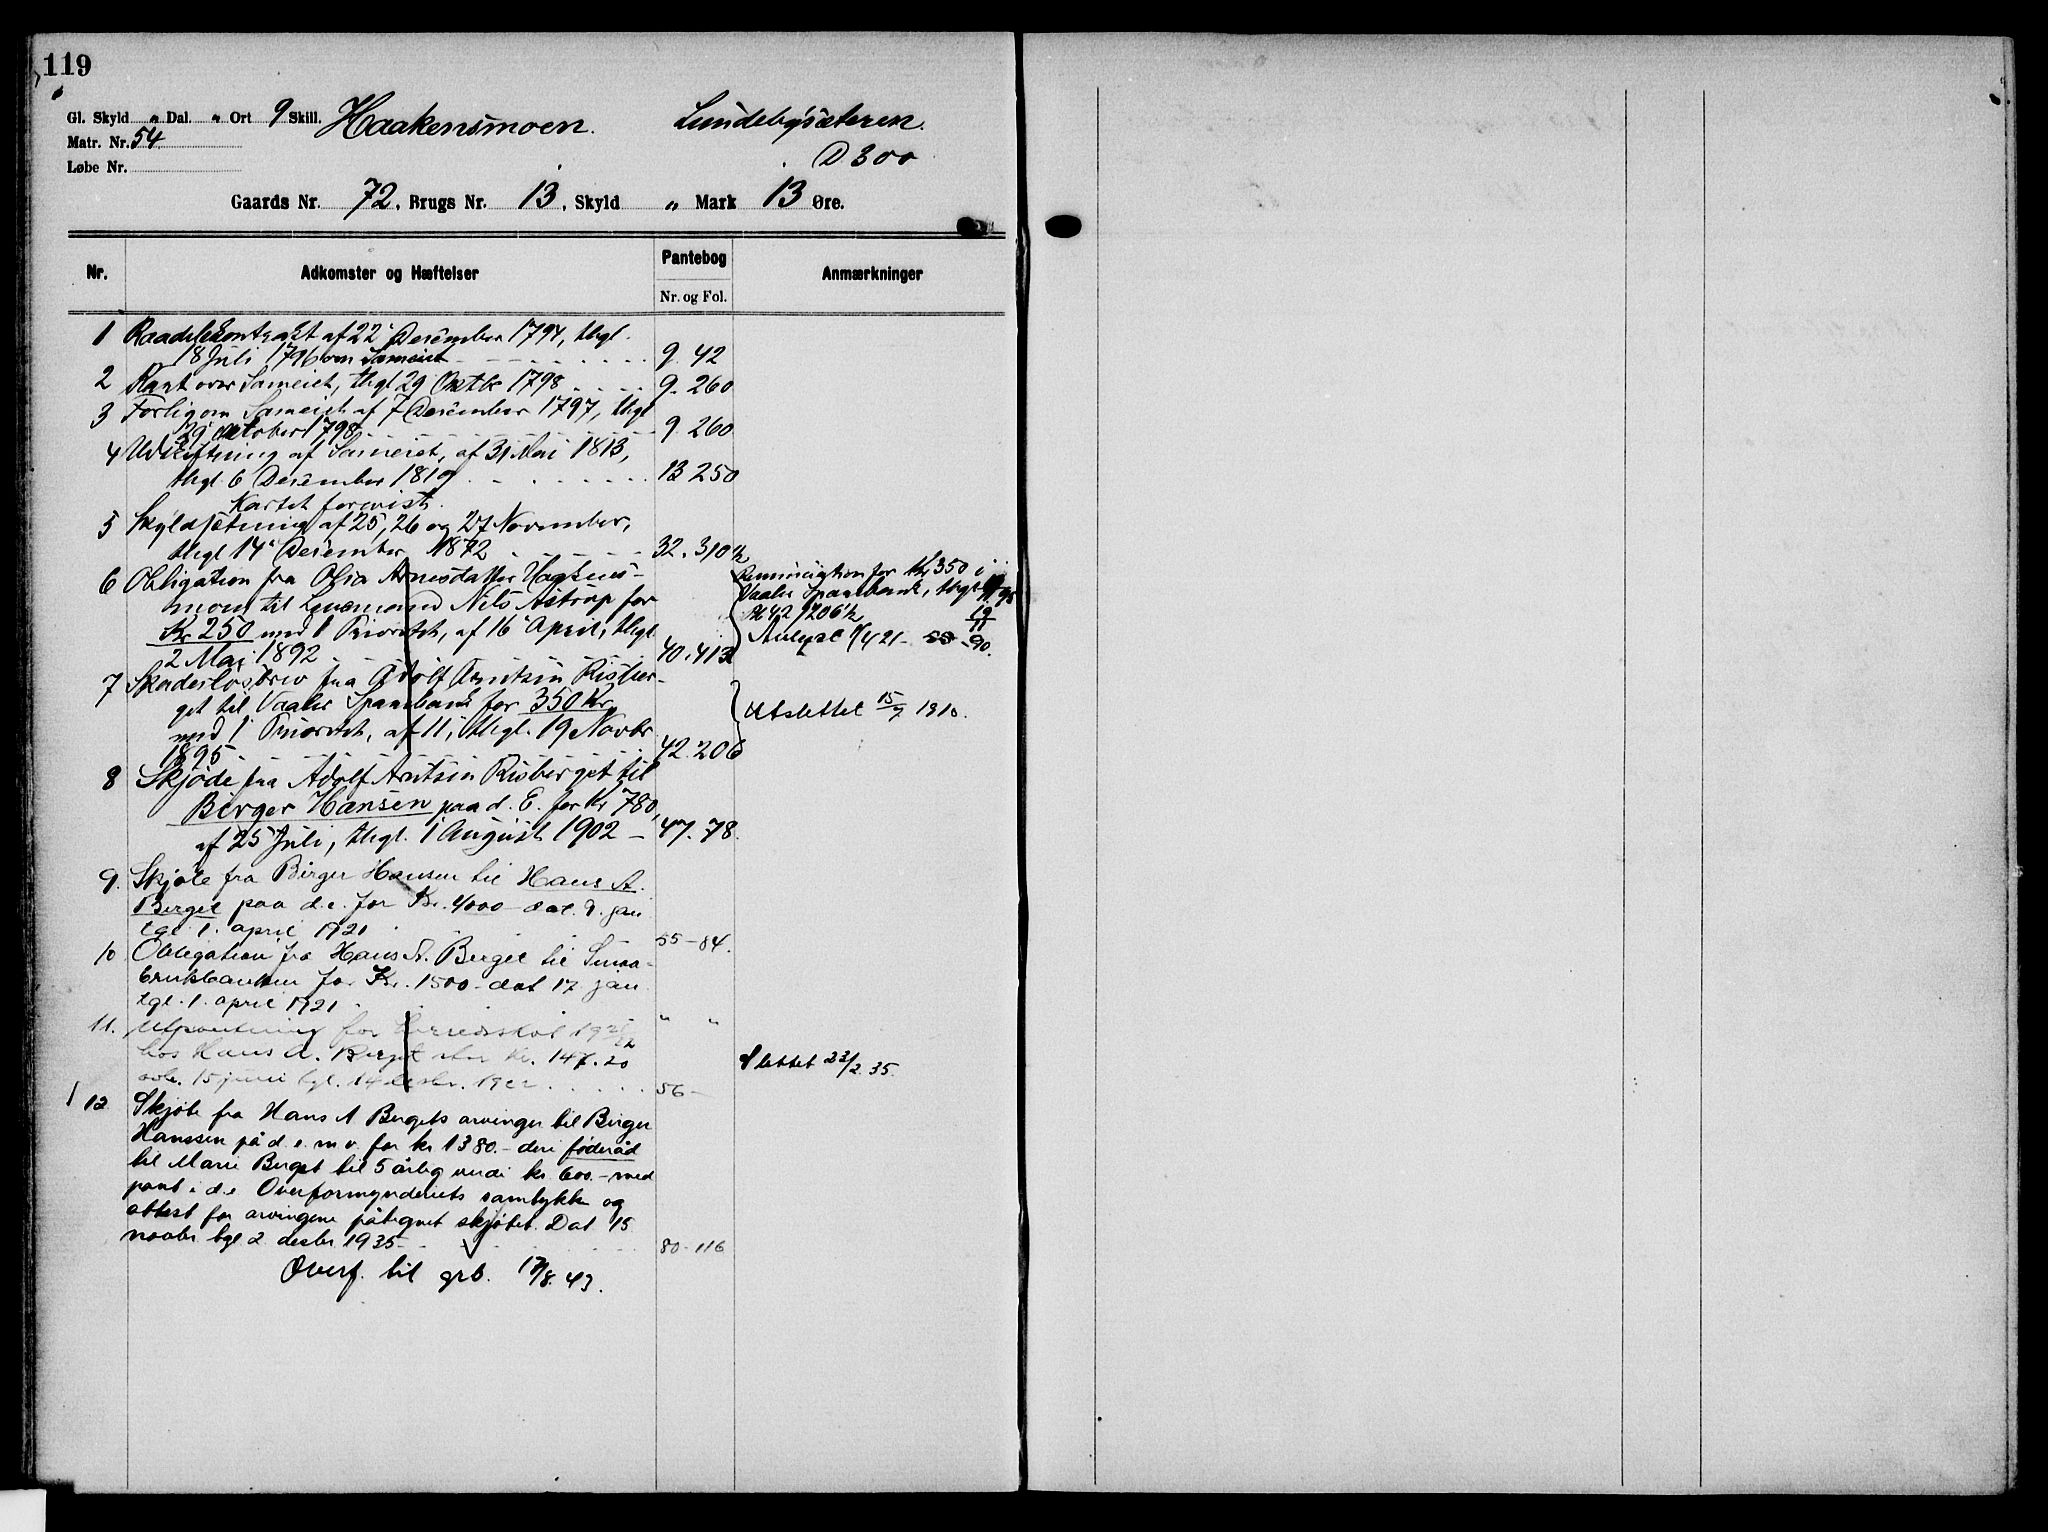 119
Gl. Skyld " Dal. " Ort 9 Skill. Haakensmoen. Lundebysæteren.
Matr. Nr. 54
D 300
Løbe Nr.
Gaards Nr. 72, Brugs Nr. 13, Skyld " Mark 13 Øre.
Nr. Adkomster og Hæftelser Pantebog Anmærkninger
Nr. og Fol.
1 Raadelskontrakt af 22 December 1794, thgl.
18 Juli 1796 om Sameiet 9. 42
2 Kart over Sameiet, thgl 29 Oktbr 1798 9. 260
3 Forlig om Sameiet af 7 December 1797, thgl
29 October 1798 9. 260
4 Udskiftning af Sameiet, af 31 Mai 1813,
thgl. 6 December 1819 13 250
Kartet forevist.
5 Skyldsætning af 25, 26 og 27 November,
thgl 14 December 1872 32. 310 b
6 Obligation fra Olia Arnesdatter
til Lensmand Nils Astrup for
Kr 250 med 1 Prioritet, af 16 April, thgl.
2 Mai 1892 40. 413
for Kr 350 i
Vaaler Sparebank, thgl 19/11 95
42/206 b
Avlyst 1/4 21 - 90.
7 Skadesløsbrev fra Adolf Arntsen Risber-
get til Vaaler Sparebank for 350 Kr
med 1 Prioritet, af 11, thgl. 19 Novbr
1895 42. 206
Utslettet 15/9 1910.
8 Skjøde fra Adolf Arntsen Risberget til
Birger Hansen paa d. E. for Kr 780,
af 25 Juli, thgl. 1 August 1902 - 47. 78.
9. Skjøte fra Birger Hansen til Hans A.
Berget paa d.e. for Kr. 4000 - dat. 9. jan
tgl. 1. april 1921 55-84.
10 Obligation fra Hans A. Berget til Smaa-
brukbanken for Kr. 1500 - dat 17 jan
tgl. 1. april 1921 " "
11. Utpantning for herredsskat 1921/22
hos Hans A. Berget stor kr. 147.20
avh. 15 juni tgl. 14 desbr. 1922 56 -
Slettet 22/2 35.
12 Skjøte fra Hans A Bergets arvinger til Birger
Hanssen på d. e. m v. for kr 1380.- deri føderåd
til Marie Berget til 5 årlig verdi kr. 600.- med
pant i d.e Overformynderiets samtykke og
attest for arvingene påtegnet skjøtet. Dat 15
novbr tgl 2 desbr 1935 80-116
Overf. til grb. 17/8. 43.